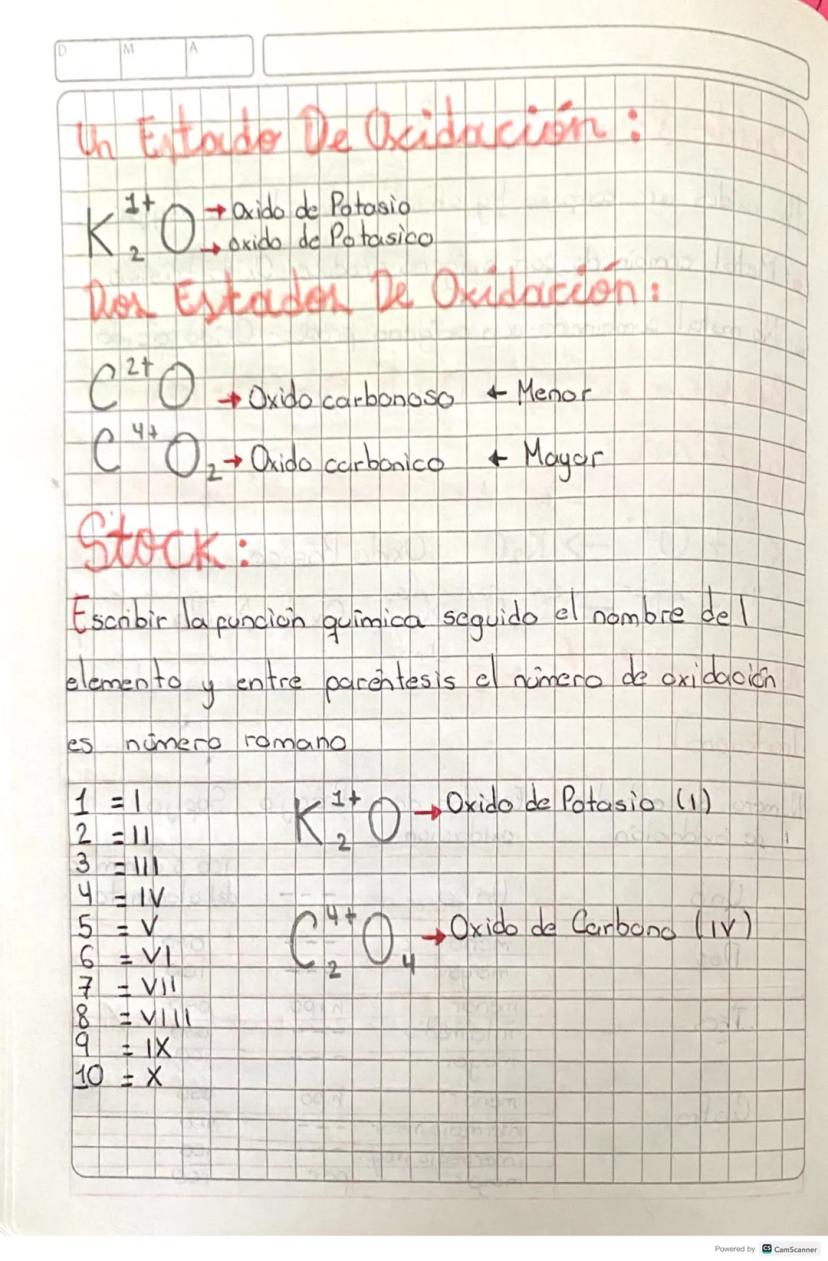 D M A
Un Estado De Oxidación:
K₂¹⁺O → Oxido de Potasio
→ oxido de Potasico
Dos Estados De Oxidación:
C²⁺O → Oxido carbonoso ← Menor
C⁴⁺O₂ → Oxido carbonico ← Mayor
Stock:
Escribir la función química seguido el nombre del
elemento y entre paréntesis el número de oxidación
es número romano
1 = I
2 = II
3 = III
4 = IV
5 = V
6 = VI
7 = VII
8 = VIII
9 = IX
10 = X
K₂¹⁺O → Oxido de Potasio (I)
C₂⁴⁺O₄ → Oxido de Carbono (IV)
Powered by CS CamScanner